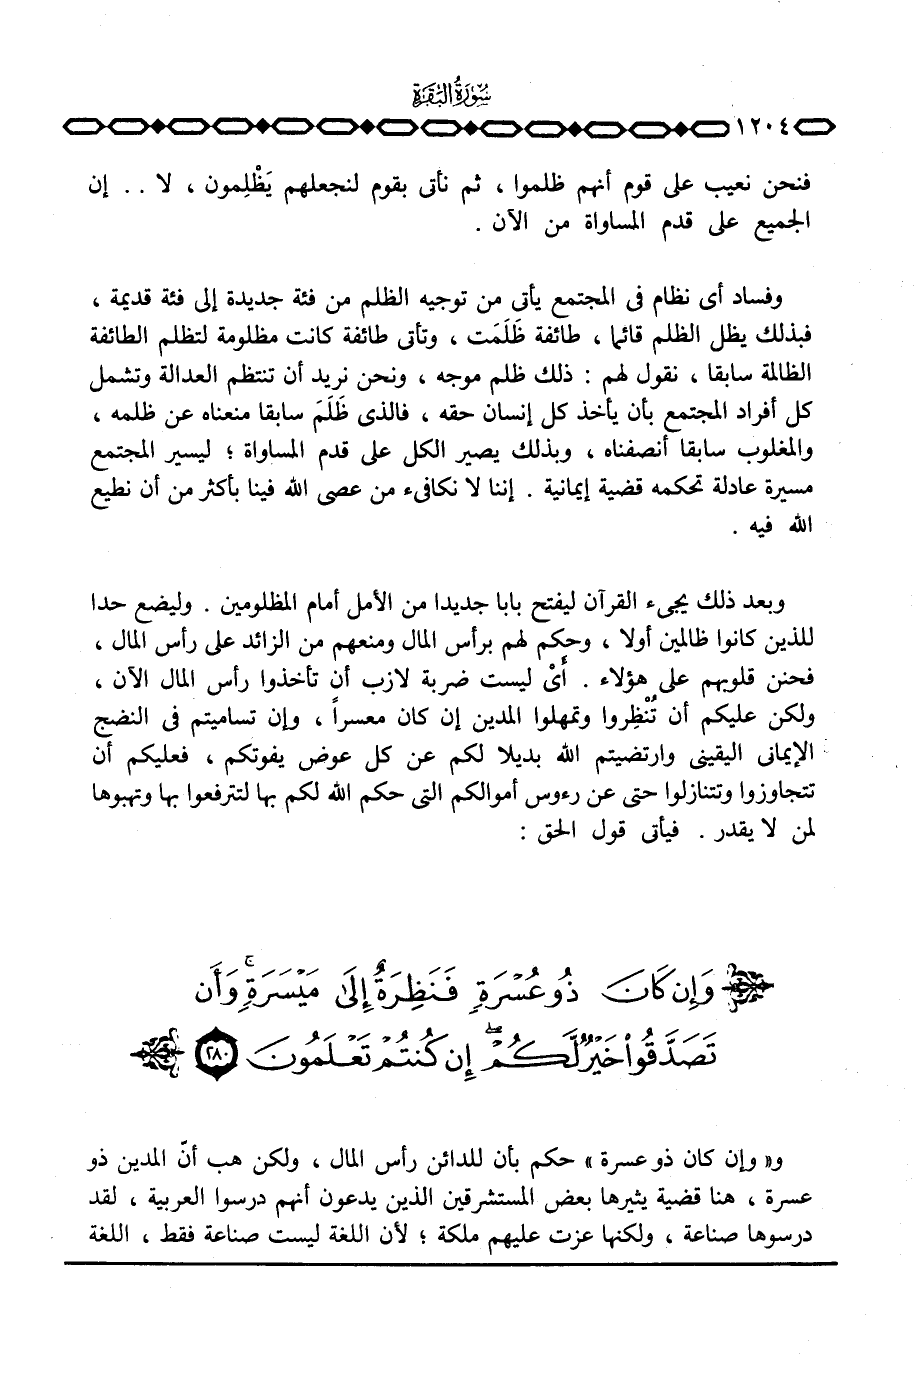 سُورَةُ البَقَرَةِ
١٢٠٤
فنحن نعيب على قوم أنهم ظلموا ، ثم نأتى بقوم لنجعلهم يَظْلِمون ، لا .. إن
الجميع على قدم المساواة من الآن .
وفساد أى نظام فى المجتمع يأتى من توجيه الظلم من فئة جديدة إلى فئة قديمة ،
فبذلك يظل الظلم قائما ، طائفة ظَلَمَت ، وتأتى طائفة كانت مظلومة لتظلم الطائفة
الظالمة سابقا ، نقول لهم : ذلك ظلم موجه ، ونحن نريد أن تنتظم العدالة وتشمل
كل أفراد المجتمع بأن يأخذ كل إنسان حقه ، فالذى ظَلَمَ سابقا منعناه عن ظلمه ،
والمغلوب سابقا أنصفناه ، وبذلك يصير الكل على قدم المساواة ؛ ليسير المجتمع
مسيرة عادلة تحكمه قضية إيمانية . إننا لا نكافىء من عصى الله فينا بأكثر من أن نطيع
الله فيه .
وبعد ذلك يجىء القرآن ليفتح بابا جديدا من الأمل أمام المظلومين . وليضع حدا
للذين كانوا ظالمين أولا ، وحكم لهم برأس المال ومنعهم من الزائد على رأس المال ،
فحنن قلوبهم على هؤلاء . أَىْ ليست ضربة لازب أن تأخذوا رأس المال الآن ،
ولكن عليكم أن تُنْظِروا وتمهلوا المدين إن كان معسراً ، وإن تساميتم فى النضج
الإيمانى اليقينى وارتضيتم الله بديلا لكم عن كل عوض يفوتكم ، فعليكم أن
تتجاوزوا وتتنازلوا حتى عن رءوس أموالكم التى حكم الله لكم بها لتترفعوا بها وتهبوها
لمن لا يقدر . فيأتى قول الحق :
وَإِن كَانَ ذُو عُسْرَةٍ فَنَظِرَةٌ إِلَىٰ مَيْسَرَةٍ ۚ وَأَن
تَصَدَّقُوا۟ خَيْرٌ لَّكُمْ ۖ إِن كُنتُمْ تَعْلَمُونَ ٢٨٠
و« وإن كان ذو عسرة » حكم بأن للدائن رأس المال ، ولكن هب أنّ المدين ذو
عسرة ، هنا قضية يثيرها بعض المستشرقين الذين يدعون أنهم درسوا العربية ، لقد
درسوها صناعة ، ولكنها عزت عليهم ملكة ؛ لأن اللغة ليست صناعة فقط ، اللغة